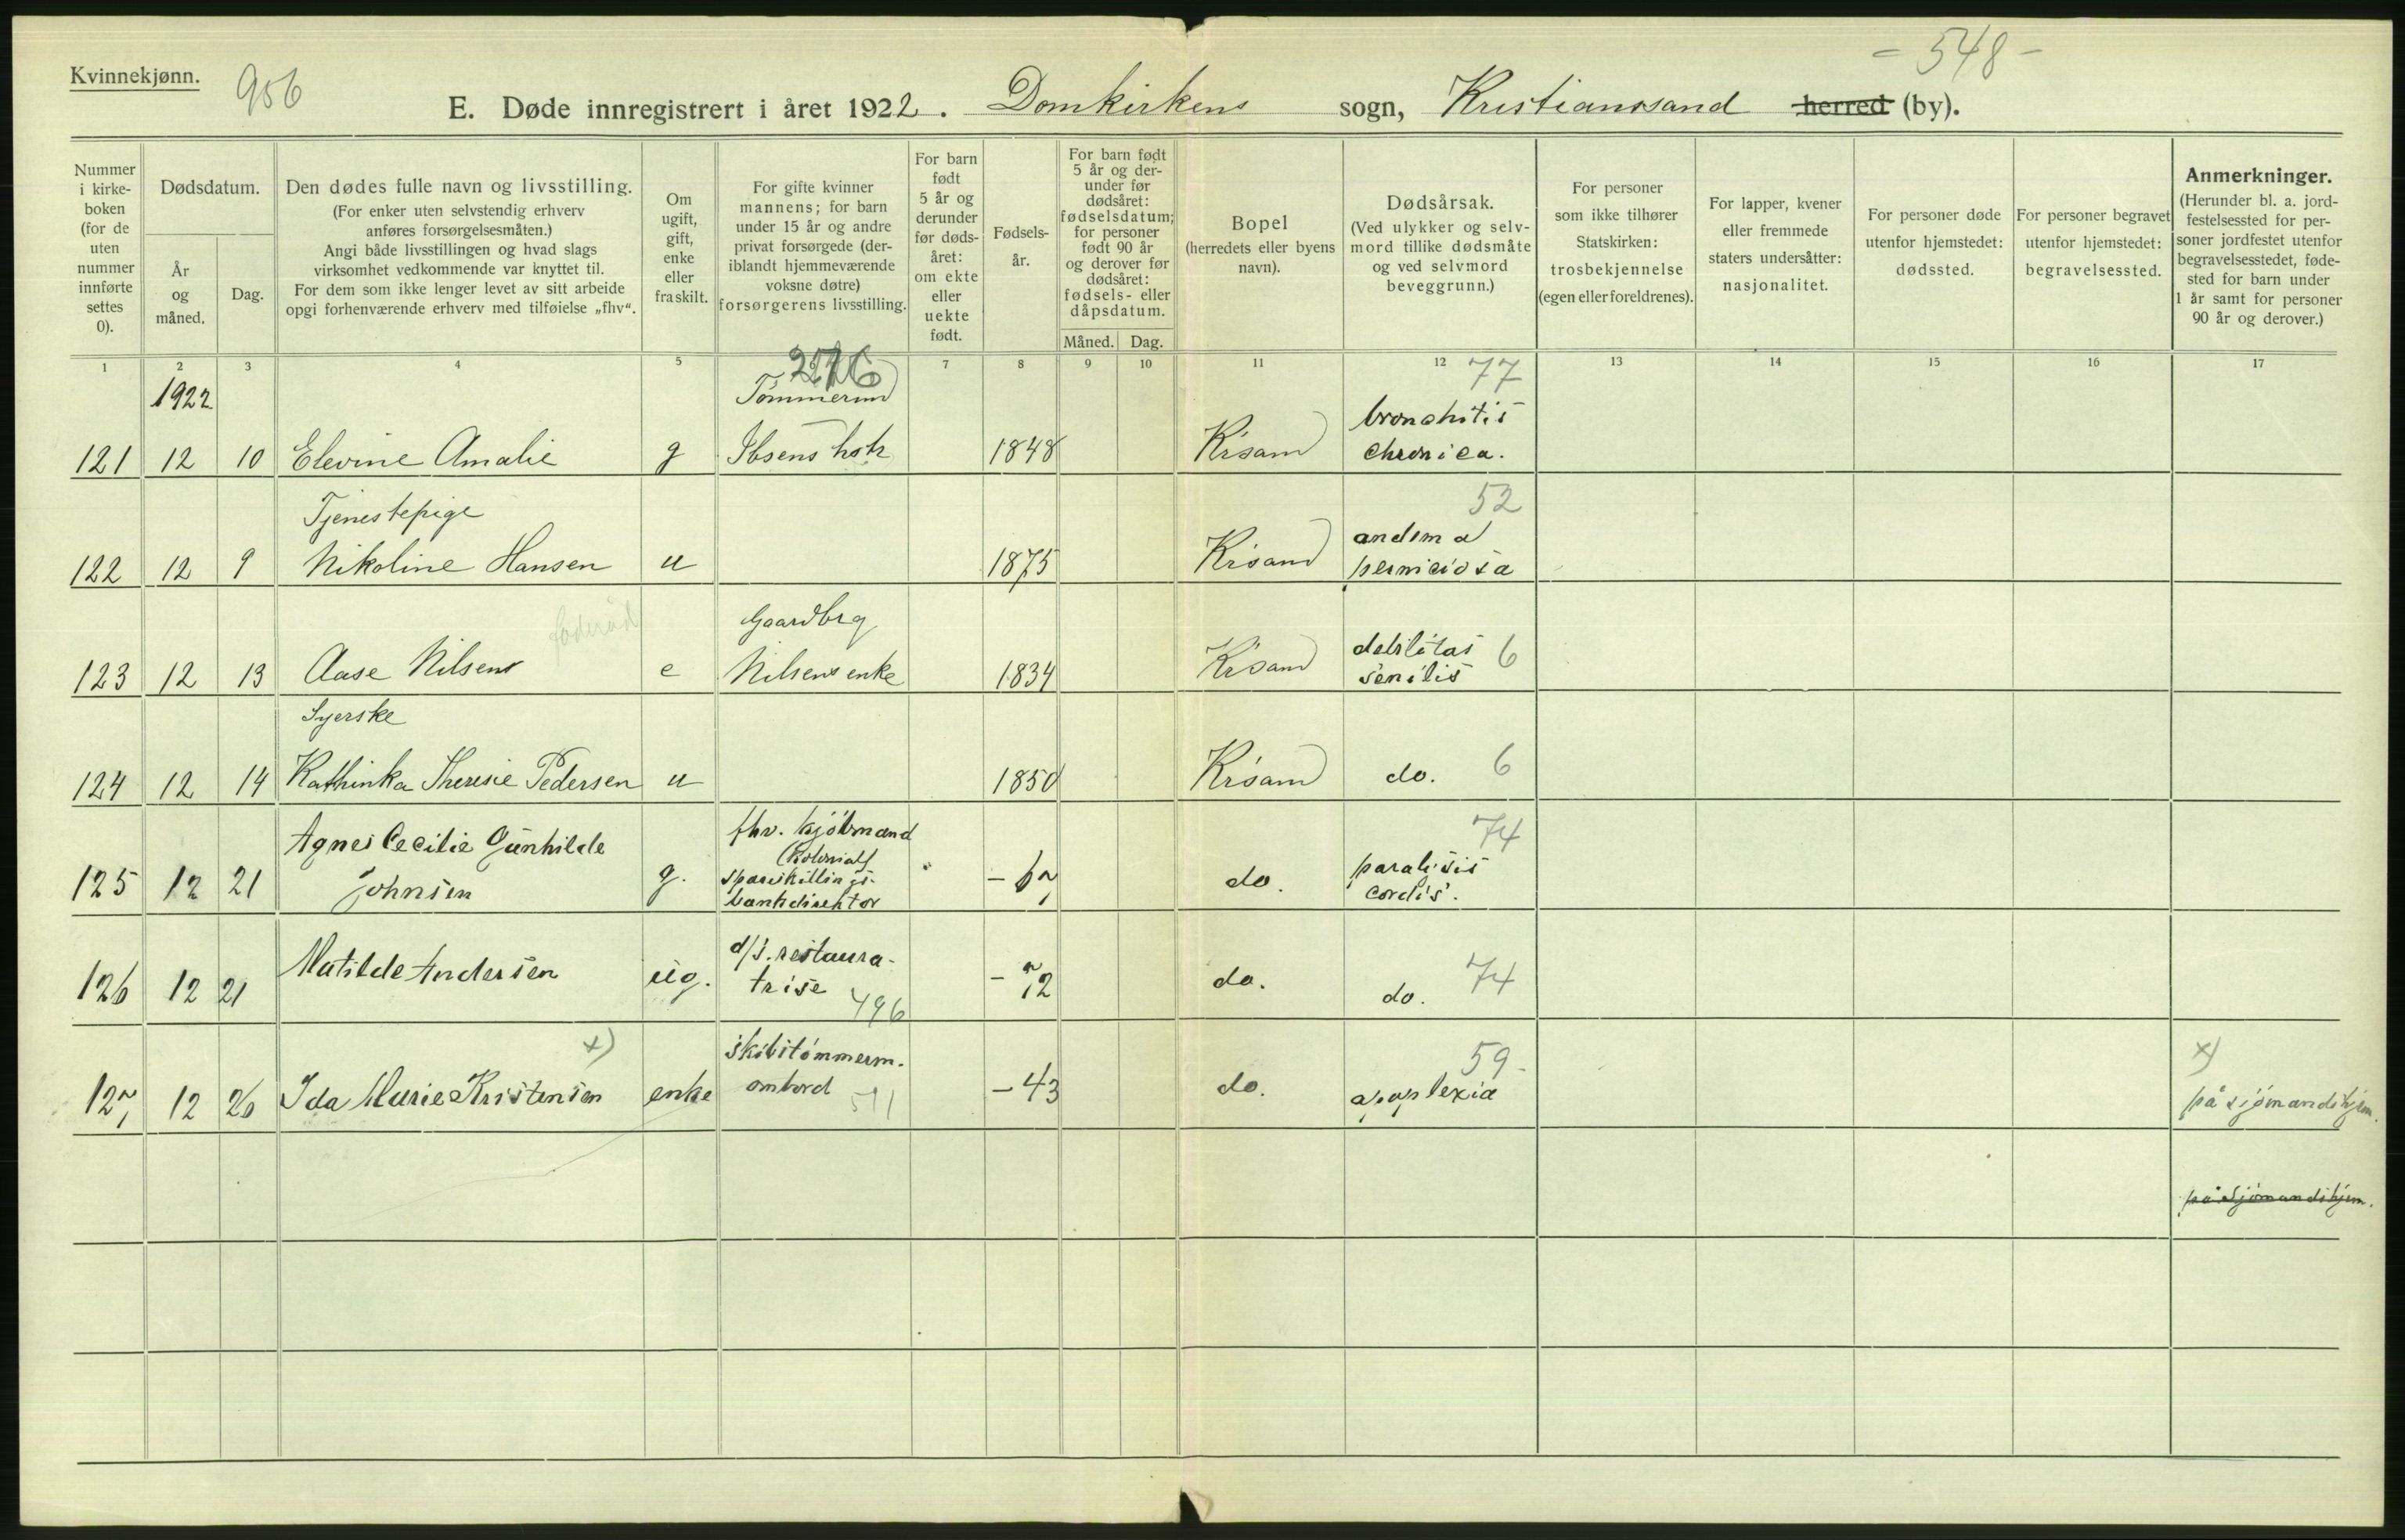 - 548 -
Kvinnekjønn.
956
E. Døde innregistrert i året 1922. Domkirkens sogn, Kristianssand herred (by).
Nummer i kirke- boken (for de uten nummer innførte settes 0).
Dødsdatum.
År og måned.
Dag.
Den dødes fulle navn og livsstilling.
(For enker uten selvstendig erhverv anføres forsørgelsesmåten.)
Angi både livsstillingen og hvad slags virksomhet vedkommende var knyttet til.
For dem som ikke lenger levet av sitt arbeide opgi forhenværende erhverv med tilføielse „fhv“.
Om ugift, gift, enke eller fraskilt.
For gifte kvinner mannens; for barn under 15 år og andre privat forsørgede (der- iblandt hjemmeværende voksne døtre) forsørgerens livsstilling.
For barn født 5 år og derunder før døds- året: om ekte eller uekte født.
Fødsels- år.
For barn født 5 år og der- under før dødsåret: fødselsdatum; for personer født 90 år og derover før dødsåret: fødsels- eller dåpsdatum.
Måned. Dag.
Bopel (herredets eller byens navn).
Dødsårsak. (Ved ulykker og selv- mord tillike dødsmåte og ved selvmord beveggrunn.)
For personer som ikke tilhører Statskirken: trosbekjennelse (egen eller foreldrenes).
For lapper, kvener eller fremmede staters undersåtter: nasjonalitet.
For personer døde utenfor hjemstedet: dødssted.
For personer begravet utenfor hjemstedet: begravelsessted.
Anmerkninger. (Herunder bl. a. jord- festelsessted for per- soner jordfestet utenfor begravelsesstedet, føde- sted for barn under 1 år samt for personer 90 år og derover.)
1 2 3 4 5 7 8 9 10 11 12 13 14 15 16 17
1922 Tømmerm 77
bronchitis
121 12 10 Elevine Amalie g Ibsens 1848 Kr'sand chronica.
Tjenestepige 52
122 12 9 Nikoline Hansen u 1875 Kr'sand perniciosa
Gaardbrg
debilitas 6
123 12 13 Aase Nilsen e Nilsens enke 1834 Kr'sand senilis
Syerske
124 12 14 Kathinka Theresie Pedersen u 1850 Kr'sand do. 6
Agnes Cecilie Gunhilde fhv. kjøbmand 74
(kolonial) paralysis
125 12 21 Johnsen g. spareskillings- - 67 do. cordis.
bankdirektør
Matilde Andersen d/s. restaura-
126 12 21 ug. trise - 72 do. do. 74
496
x) skibstømmerm. 59 - x)
127 12 26 Ida Marie Kristensen enke ombord 511 - 43 do. apoplexia på sjømandshjem.
på sjømandshjem.